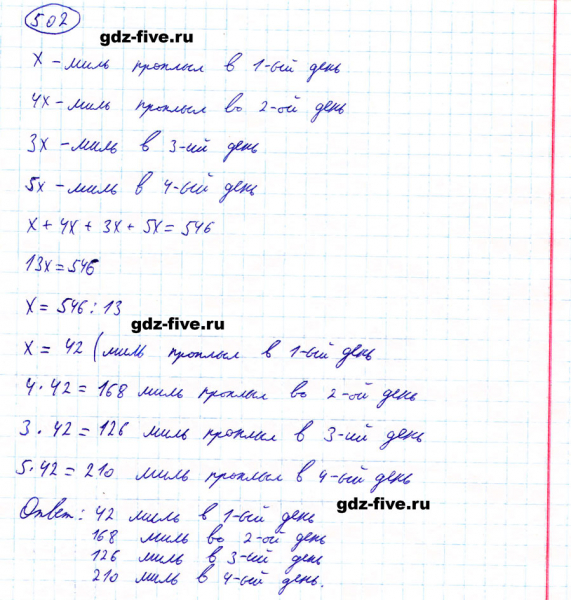 502
gdz-five.ru
x - миль проплыл в 1-ый день
4x - миль проплыл во 2-ой день
3x - миль в 3-ий день
5x - миль в 4-ый день
x + 4x + 3x + 5x = 546
13x = 546
x = 546 : 13
gdz-five.ru
x = 42 (миль проплыл в 1-ый день
4 · 42 = 168 миль проплыл во 2-ой день
3 · 42 = 126 миль проплыл в 3-ий день
5 · 42 = 210 миль проплыл в 4-ый день
gdz-five.ru
Ответ: 42 миль в 1-ый день
168 миль во 2-ой день
126 миль в 3-ий день
210 миль в 4-ый день.